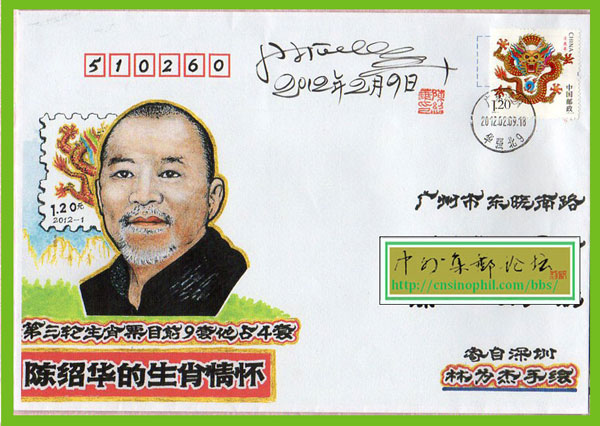 510260
2012年2月9日
CHINA
1.20
中国邮政
2012.02.09.18
华强北9
广州市东晓南路
中外集邮论坛
http://cnsinophil.com/bbs/
1.20元
2012-1
第三轮生肖票目前9套他占4套
陈绍华的生肖情怀
寄自深圳
林分杰手绘